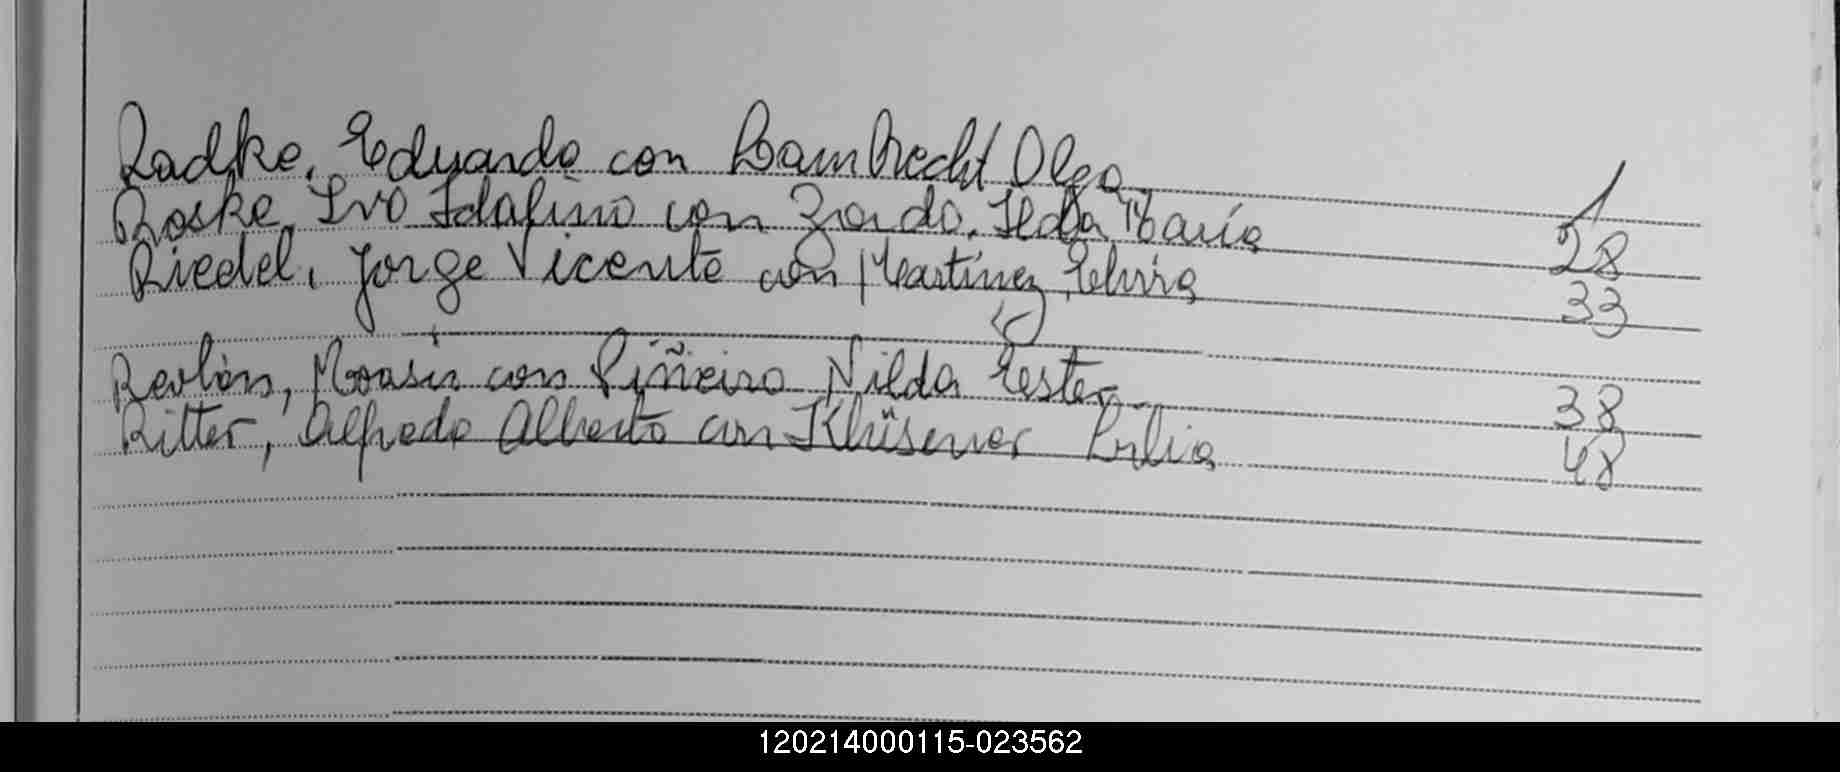 Radke, Eduardo con Lambrecht Olga 1
Roske, Ivo Idalino con Zordo, Ilda María 28
Riedel, Jorge Vicente con Martínez, Elvira 33
Rerbón, Moasir con Piñeiro Nilda Ester 38
Ritter, Alfredo Alberto con Klüsener 48
120214000115-023562